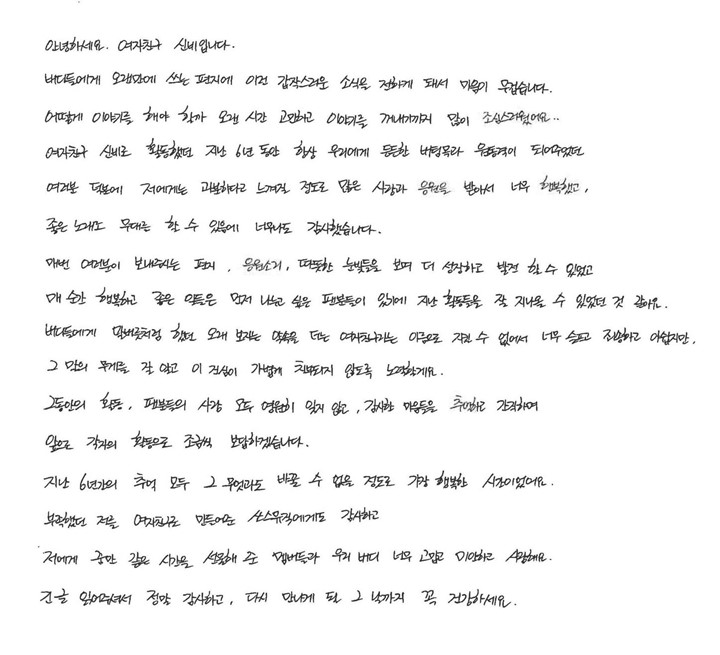 안녕하세요. 여자친구 신비입니다.
버디들에게 오랜만에 쓰는 편지에 이런 갑작스러운 소식을 전하게 돼서 마음이 무겁습니다.
어떻게 이야기를 해야 할까 오랜 시간 고민하고 이야기를 꺼내기까지 많이 조심스러웠어요..
여자친구 신비로 활동했던 지난 6년 동안 항상 우리에게 든든한 버팀목과 원동력이 되어주었던
여러분 덕분에 저에게는 과분하다고 느껴질 정도로 많은 사랑과 응원을 받아서 너무 행복했고,
좋은 노래와 무대를 할 수 있음에 너무나도 감사했습니다.
매번 여러분이 보내주시는 편지, 응원소리, 따뜻한 눈빛들을 보며 더 성장하고 발전 할 수 있었고
매 순간 행복하고 좋은 것들은 먼저 나누고 싶은 팬분들이 있기에 지난 활동들을 잘 지나올 수 있었던 것 같아요.
버디들에게 말버릇처럼 했던 오래 보자는 약속을 더는 여자친구라는 이름으로 지킬 수 없어서 너무 슬프고 죄송하고 아쉽지만,
그 말의 무게를 잘 알고 이 진심이 가볍게 치부되지 않도록 노력할게요.
그동안의 활동, 팬분들의 사랑 모두 영원히 잊지 않고, 감사한 마음들을 추억하고 간직하며
앞으로 각자의 활동으로 조금씩 보답하겠습니다.
지난 6년간의 추억 모두 그 무엇과도 바꿀 수 없을 정도로 가장 행복한 시간이었어요.
부족했던 저를 여자친구로 만들어준 쏘스뮤직에게도 감사하고
저에게 꿈만 같은 시간을 선물해 준 멤버들과 우리 버디 너무 고맙고 미안하고 사랑해요.
긴 글 읽어주셔서 정말 감사하고, 다시 만나게 될 그 날까지 꼭 건강하세요.